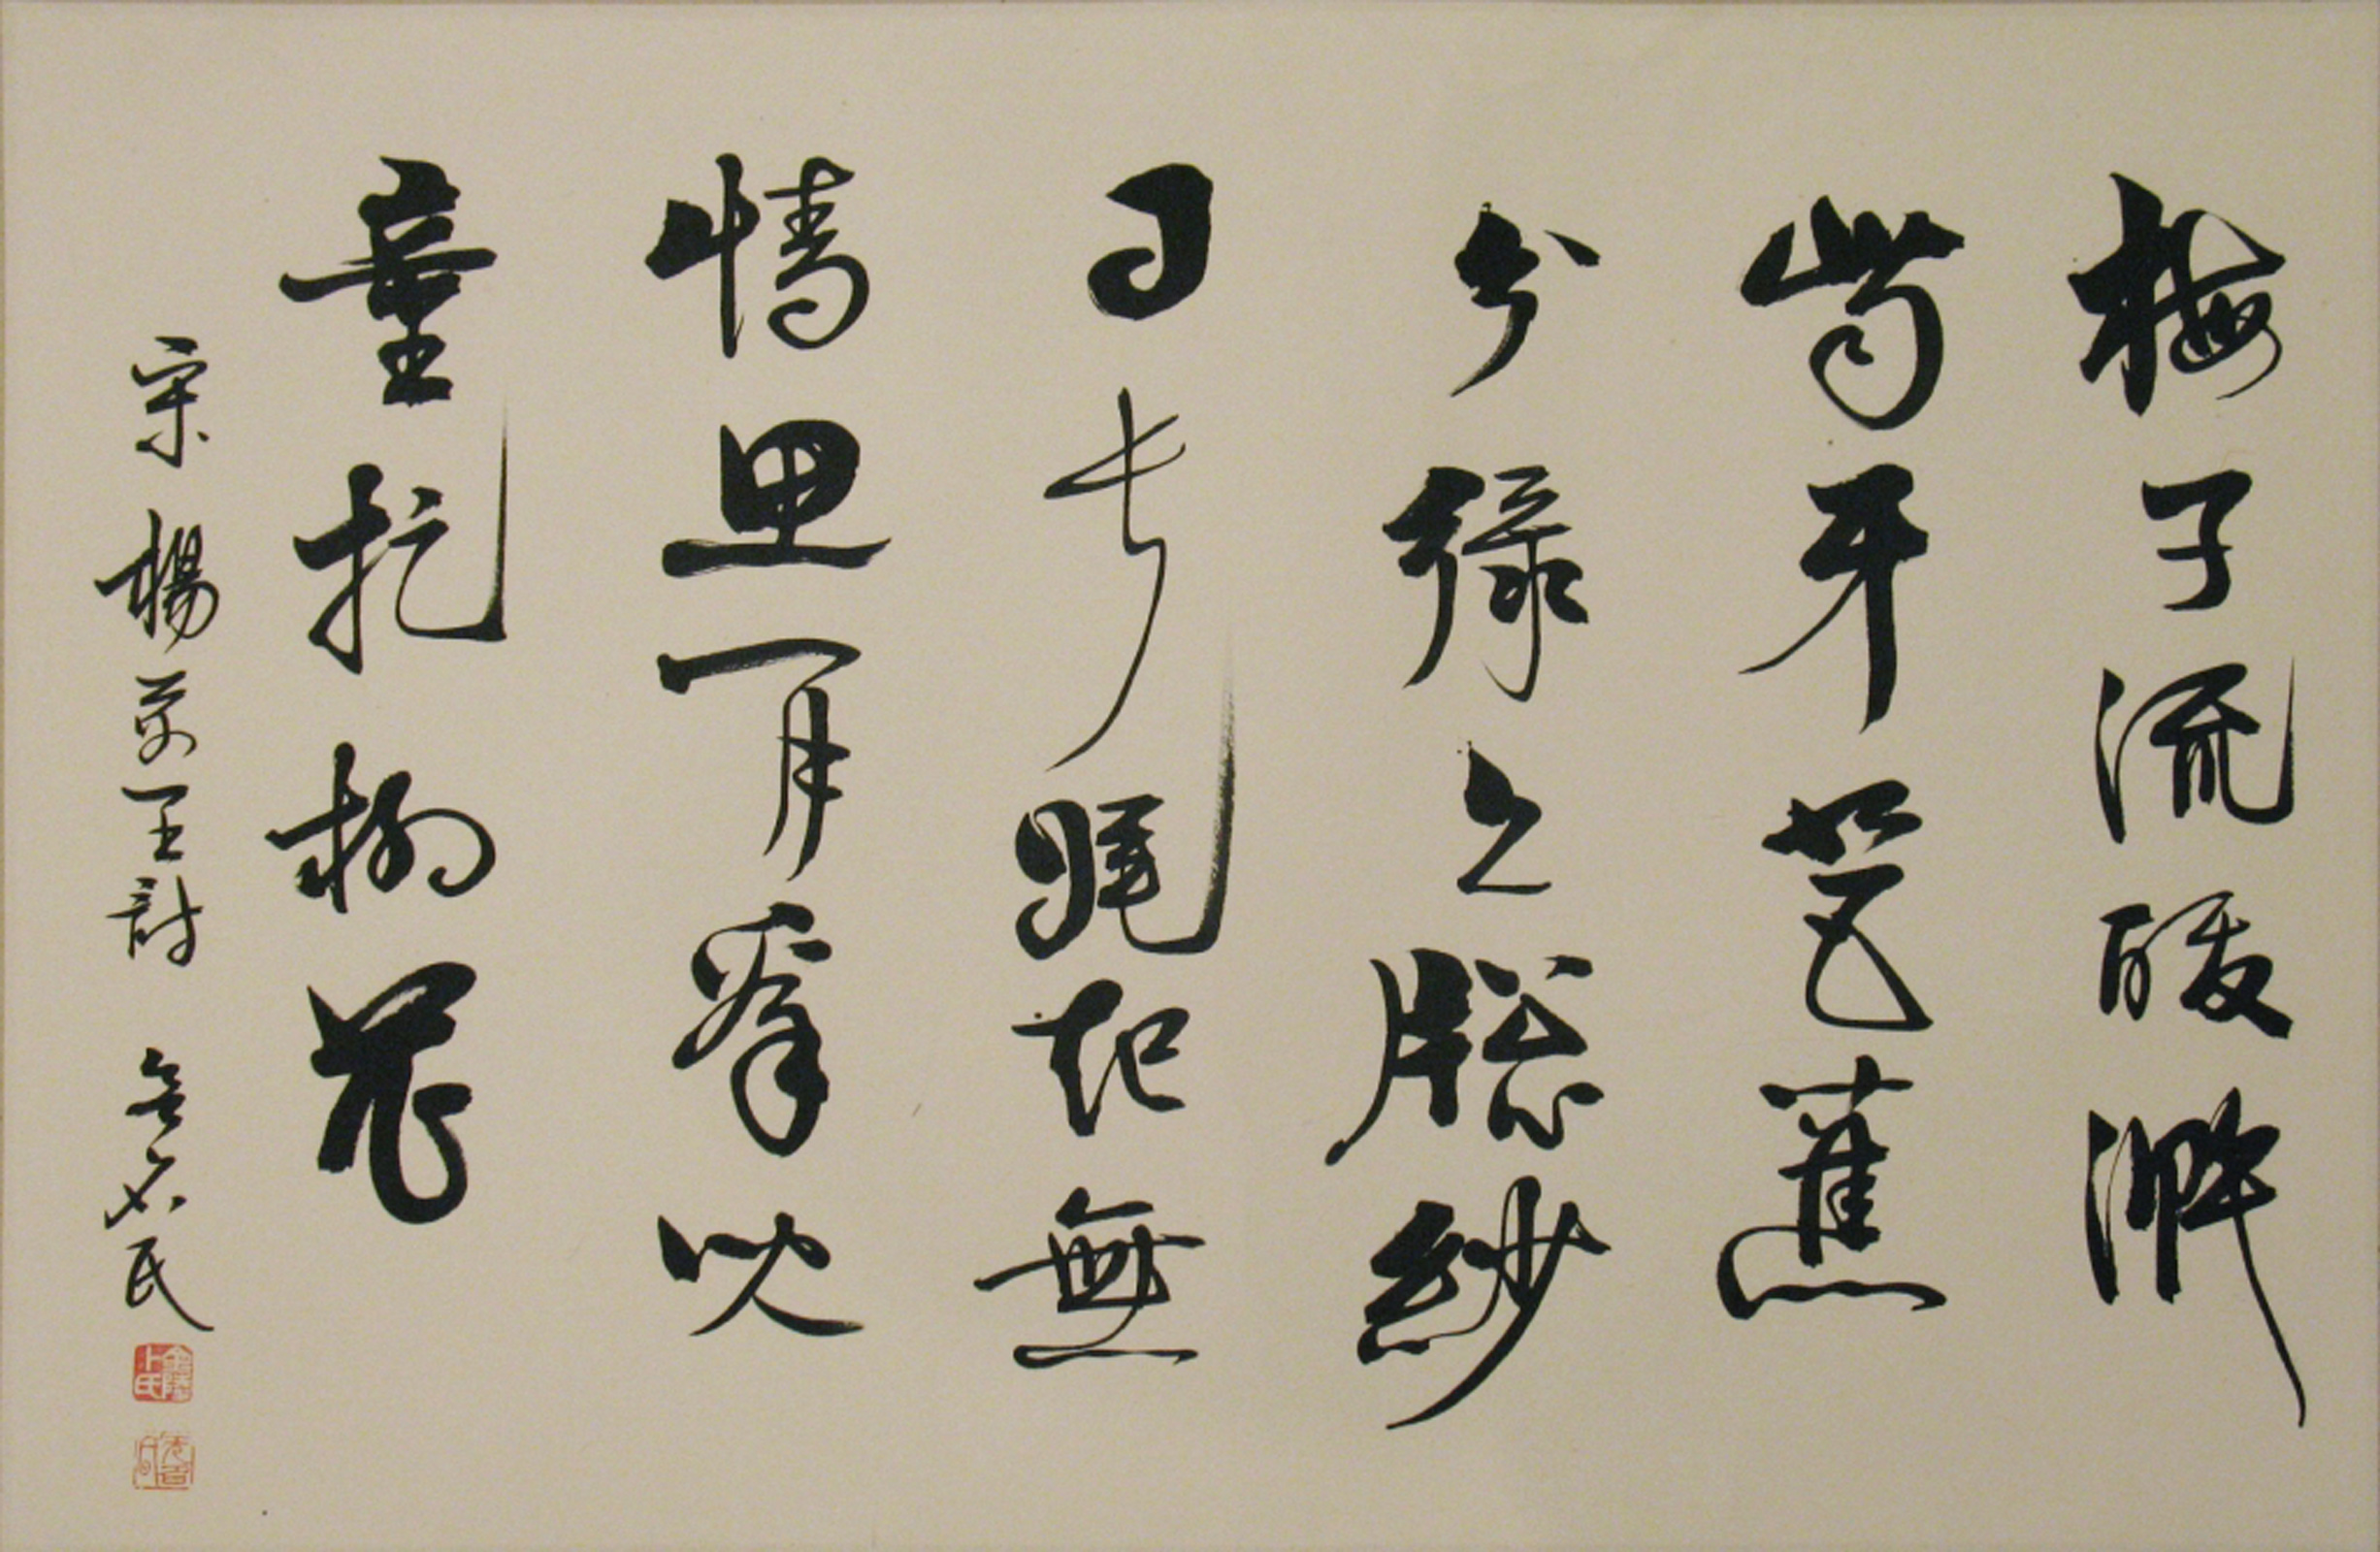 梅子流酸濺
齒牙芭蕉
分緑上牕紗
日長睡起無
情思閒看兒
童捉柳花
宋楊萬里詩